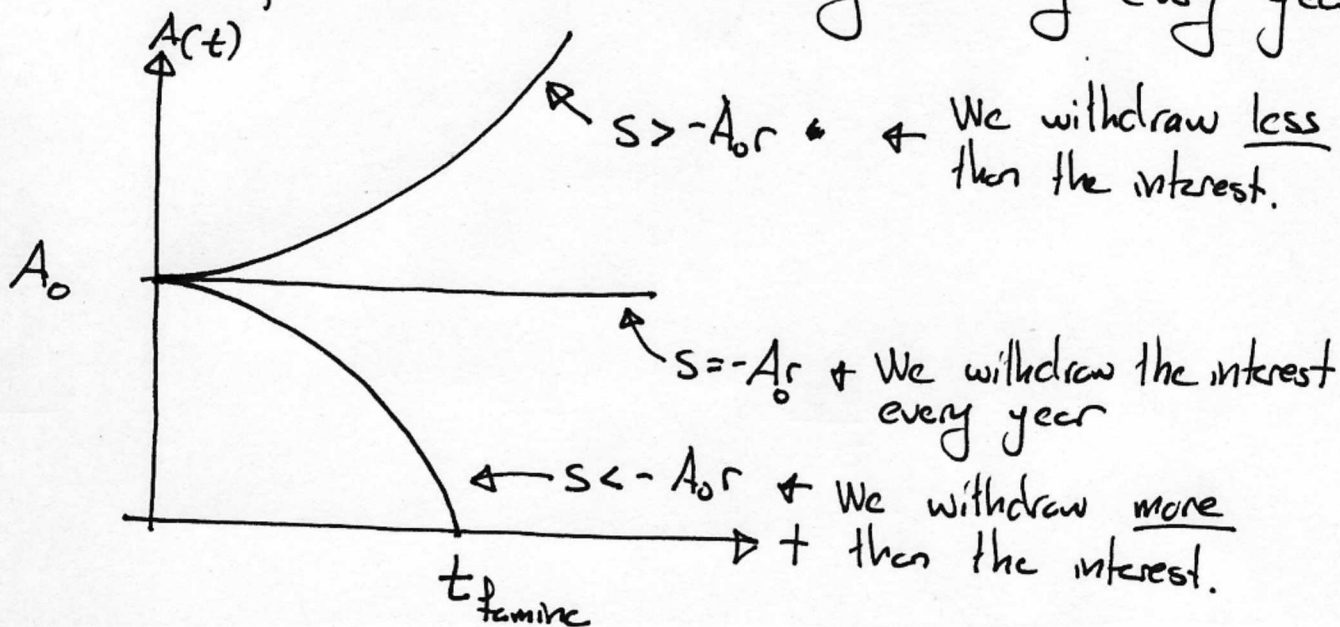 every year
A(t)
s > -A₀r ← We withdraw less
then the interest.
A₀
s = -A₀r ← We withdraw the interest
every year
← s < - A₀r ← We withdraw more
t then the interest.
t famine